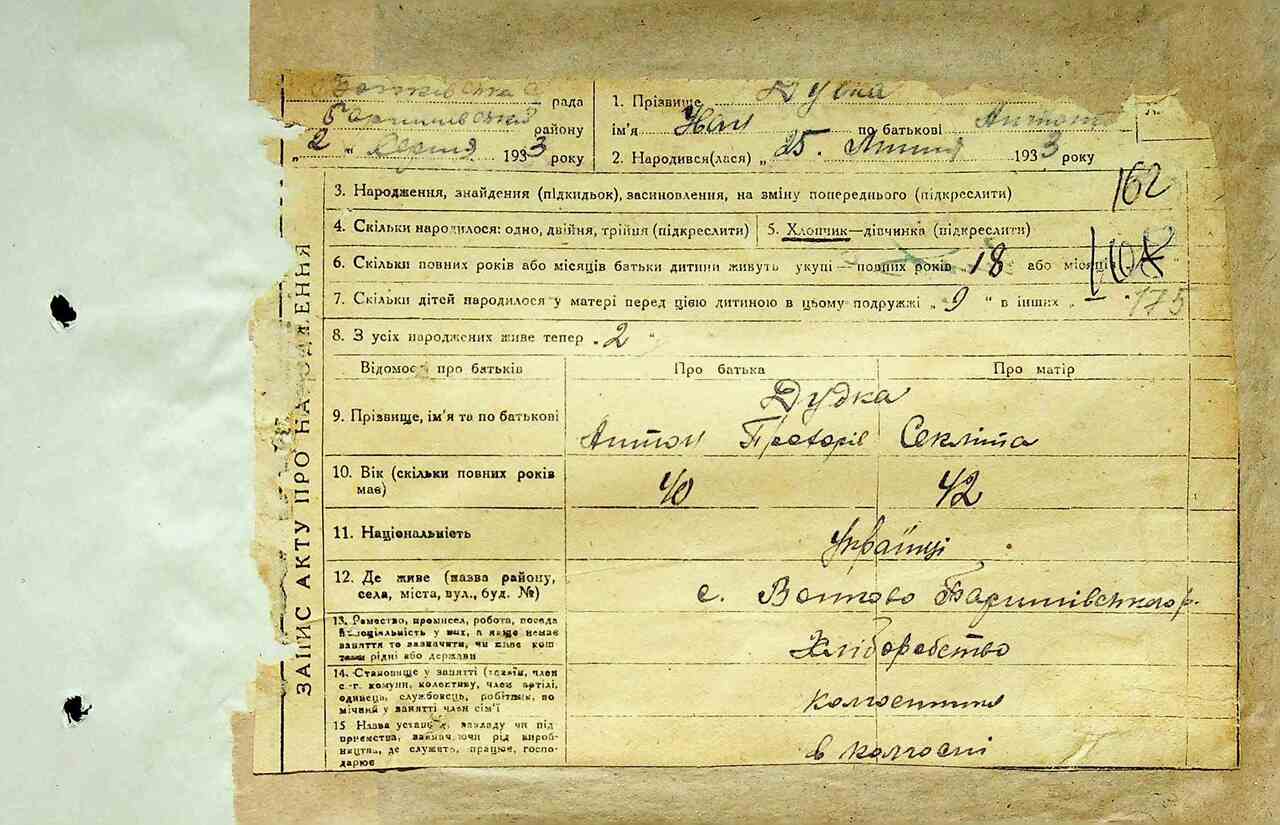 рада
району
„ 2 " Серпня 1933 року
1. Прізвище Дудка
ім'я Іван по батькові Антон
2. Народився(лася) „ 25. Липня 1933 року
ЗАПИС АКТУ ПРО НАРОДЖЕННЯ
3. Народження, знайдення (підкидьок), засиновлення, на зміну попереднього (підкреслити)
162
4. Скільки народилося: одно, двійня, трійня (підкреслити)
5. Хлопчик—дівчинка (підкреслити)
6. Скільки повних років або місяців батьки дитини живуть укупі—повних років „ 18 " або місяців
7. Скільки дітей народилося у матері перед цією дитиною в цьому подружжі „ 9 " в інших „ "
175
8. З усіх народжених живе тепер „ 2 "
Відомості про батьків Про батька Про матір
9. Прізвище, ім'я та по батькові
Дудка
Антон Прохорів Секліта
10. Вік (скільки повних років має) 40 42
11. Національність Українці
12. Де живе (назва району, села, міста, вул., буд. №)
с. Войтово Баришівського р.
13. Ремество, промисел, робота, посада
спеціяльність у них, а якщо немає
заняття то зазначити, чи живе кош
тами рідні або держави
Хліборобство
14. Становище у занятті (хазяїн, член
с.-г. комуни, колективу, член артілі,
одинець, службовець, робітник, по
мічний у занятті член сім'ї
колгоспники
15 Назва установи, закладу чи під
приємства, зазначаючи рід вироб-
ництва, де служать, працює, госпо-
дарює
в колгоспі